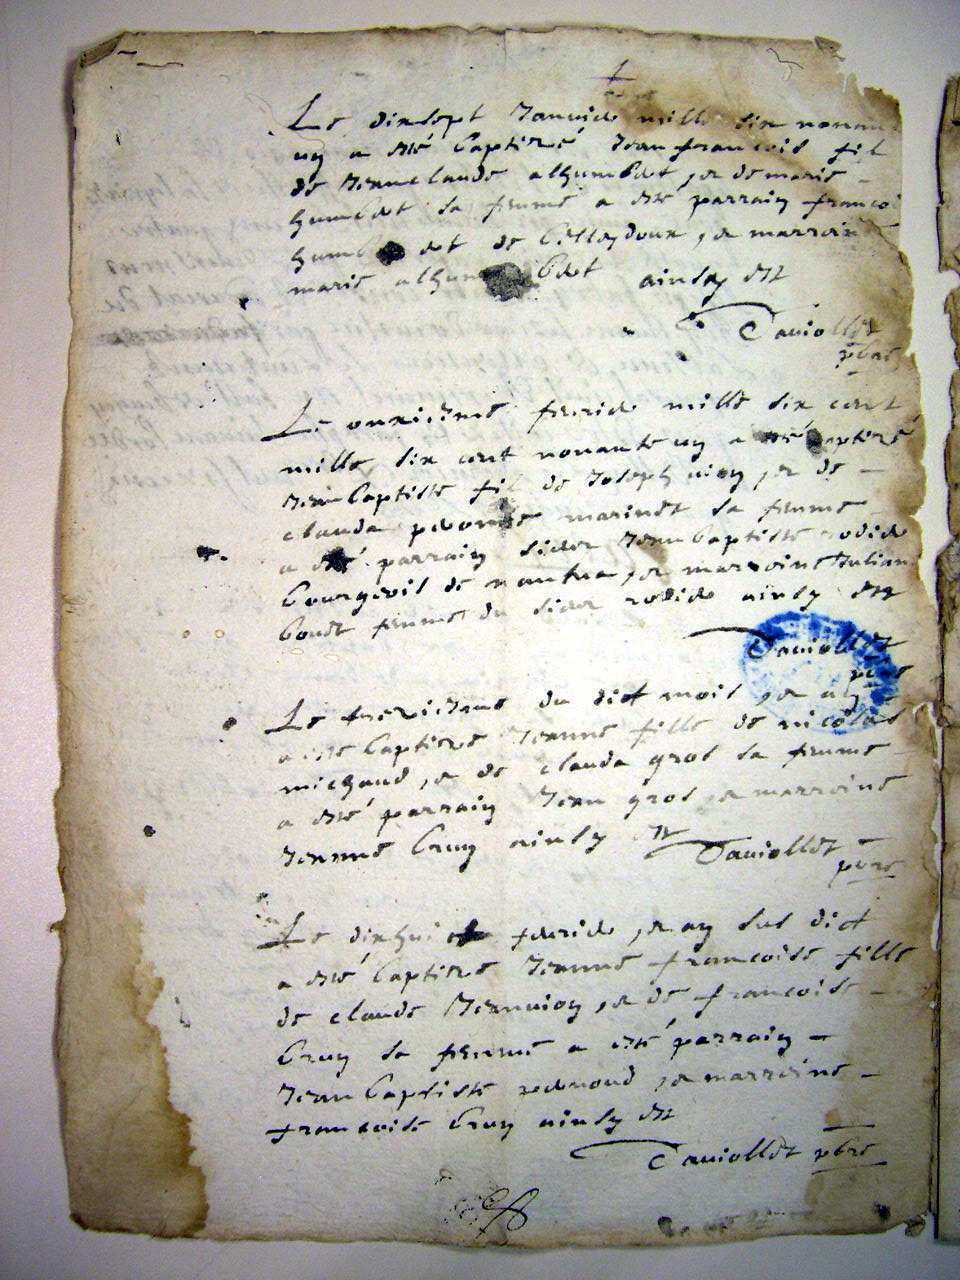 Le dixsept Januier mille six nonan
ung a esté baptizé Jean francois fil
de Jean claude alhumbert et de marie
humbert sa femme a esté parrain francoi
humbert de et marraine
marie alhumbert ainsy est
Tauiollet
pbre
Le onzieme feurier mille six cent
mille six cent nonante ung a esté baptizé
Jean baptiste fil de Joseph et de
clauda marinet sa femme
a esté parrain sieur Jean baptiste rodier
bourgeois de nantua et marraine Julian
boudt femme du sieur rodier ainsy est
Tauiollet
pbre
Le trezieme du dict mois et an
a esté baptizee Jeanne fille de nicolas
michaud et de clauda gros sa femme
a esté parrain Jean gros et marraine
Jeanne brun ainsy est
Tauiollet
pbre
Le dixhuict feurier et an sus dict
a esté baptizee Jeanne francoise fille
de claude et de francoise
brun sa femme a esté parrain
Jean baptiste et marraine
francoise brun ainsy est
Tauiollet pbre